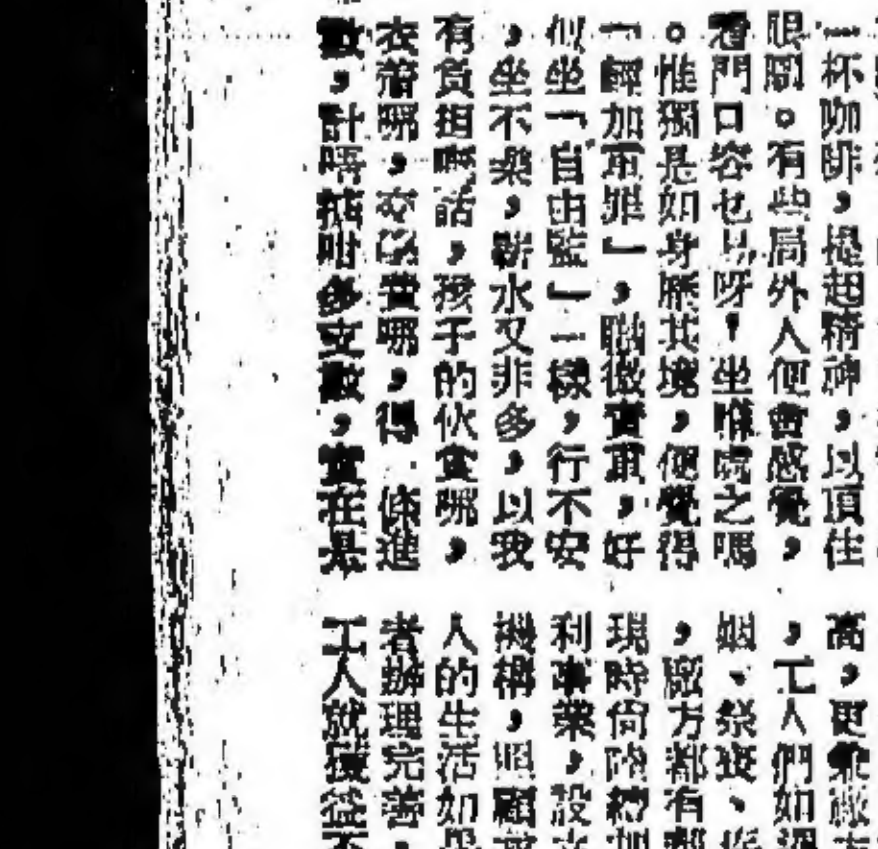 一杯咖啡，提起精神，以頂住
眼瞓。有些局外人便會感覺，
看門口容乜易呀！坐喺處之嗎
。惟獨是如身歷其境，便覺得
「輕加重罪」，職微責重，好
似坐「自由監」一樣，行不安
，坐不樂，薪水又非多，以我
有負担嘅話，孩子的伙食哪，
衣着哪，交際費哪，得條進
數，計唔掂咁多支數，實在是
高，更兼廠
，工人們如
姻、祭喪、
，廠方都有
現時尚陸續加
利事業，設
機構，照顧
人的生活如
者辦理完善，
工人就獲益不